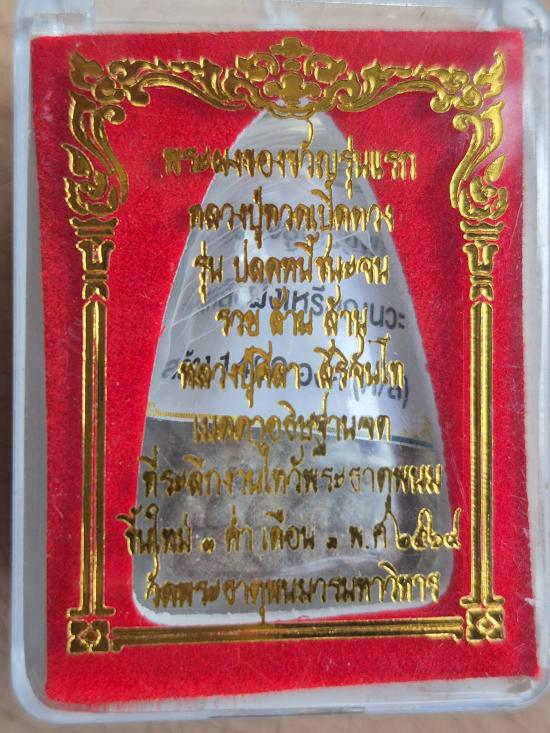 พระผงของขวัญรุ่นแรก
หลวงปู่ทวดเปิดดวง
รุ่น ปลดหนี้ชนะจน
รวย ล้าน ล้าน
หลวงปู่ศิลา สิริจันโท
เมตตาอธิษฐานจิต
ที่ระลึกงานไหว้พระธาตุพนม
ขึ้นใหม่ ๑ ค่ำ เดือน ๓ พ.ศ ๒๕๖๔
วัดพระธาตุพนมวรมหาวิหาร